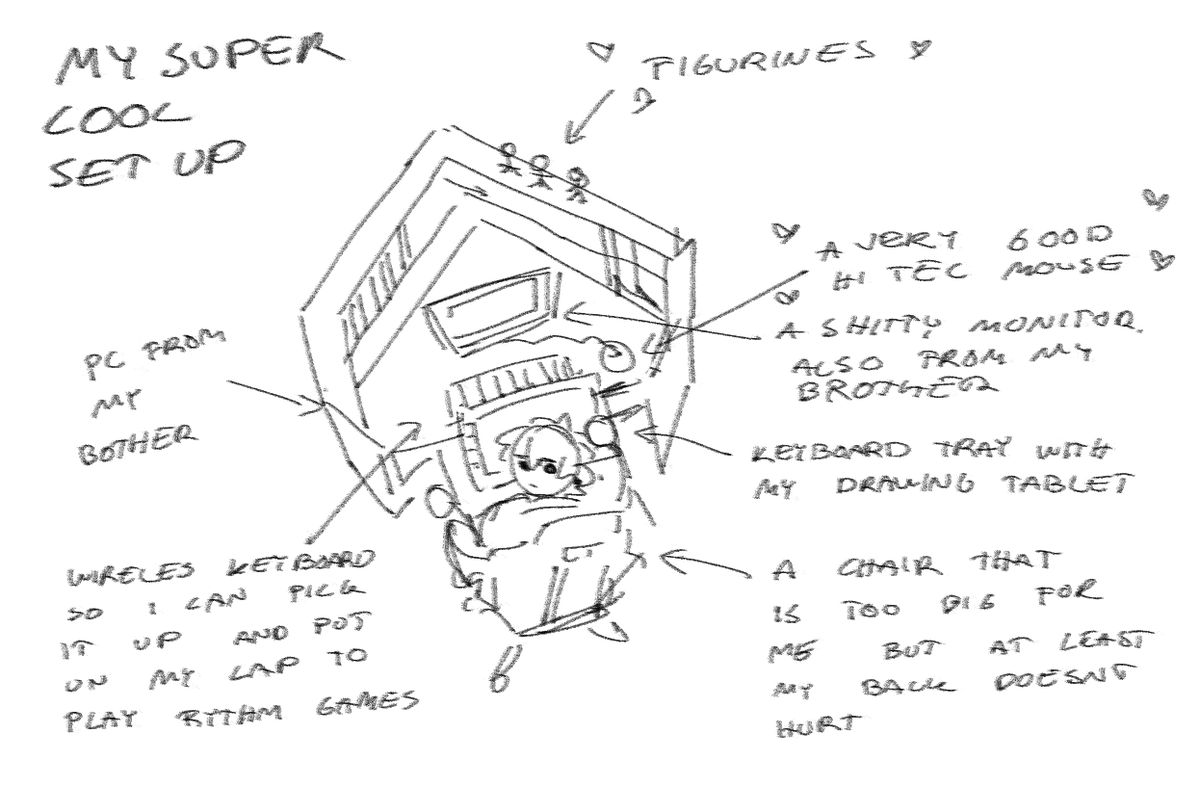 MY SUPER
COOL
SET UP
FIGURINES
A VERY GOOD
HI TEC MOUSE
A SHITTY MONITOR.
ALSO FROM MY
BROTHER
PC FROM
MY
BOTHER
KEYBOARD TRAY WITH
MY DRAWING TABLET
WIRELES KEYBOARD
SO I CAN PICK
IT UP AND PUT
ON MY LAP TO
PLAY RYTHM GAMES
A CHAIR THAT
IS TOO BIG FOR
ME BUT AT LEAST
MY BACK DOESNT
HURT